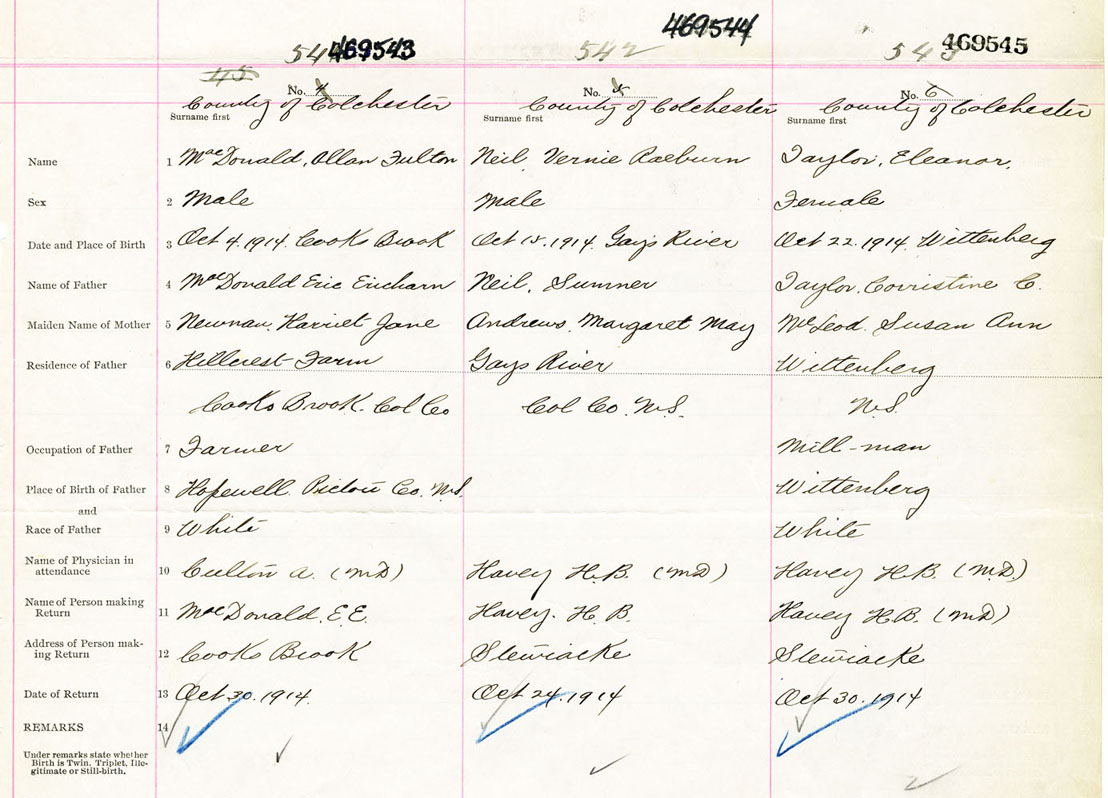 469543 542 469544 469545
45
No. 4 No. 5 No. 6
County of Colchester County of Colchester County of Colchester
Surname first Surname first Surname first
Name 1 MacDonald, Allan Fulton Neil, Vernie Raeburn Taylor, Eleanor,
Sex 2 Male Male Female
Date and Place of Birth 3 Oct 4. 1914. Cooks Brook Oct 15. 1914. Gays River Oct 22. 1914. Wittenberg
Name of Father 4 MacDonald Eric Neil, Sumner Taylor, Corristine C.
Maiden Name of Mother 5 Newman, Harriet Jane Andrews, Margaret May McLeod. Susan Ann
Residence of Father 6 Hillcrest Farm Gays River Wittenberg
Cooks Brook. Col Co Col Co. N.S. N.S.
Occupation of Father 7 Farmer Mill-man
Place of Birth of Father 8 Hopewell. Pictou Co. N.S. Wittenberg
and
Race of Father 9 White White
Name of Physician in
attendance 10 A. (MD) Havey H.B. (MD) Havey H.B. (M.D.)
Name of Person making
Return 11 MacDonald. E.E. Havey. H. B. Havey H.B. (MD)
Address of Person mak-
ing Return 12 Cooks Brook Stewiacke Stewiacke
Date of Return 13 Oct 30. 1914. Oct 24. 1914 Oct 30. 1914
REMARKS 14
Under remarks state whether
Birth is Twin, Triplet, Ille-
gitimate or Still-birth.